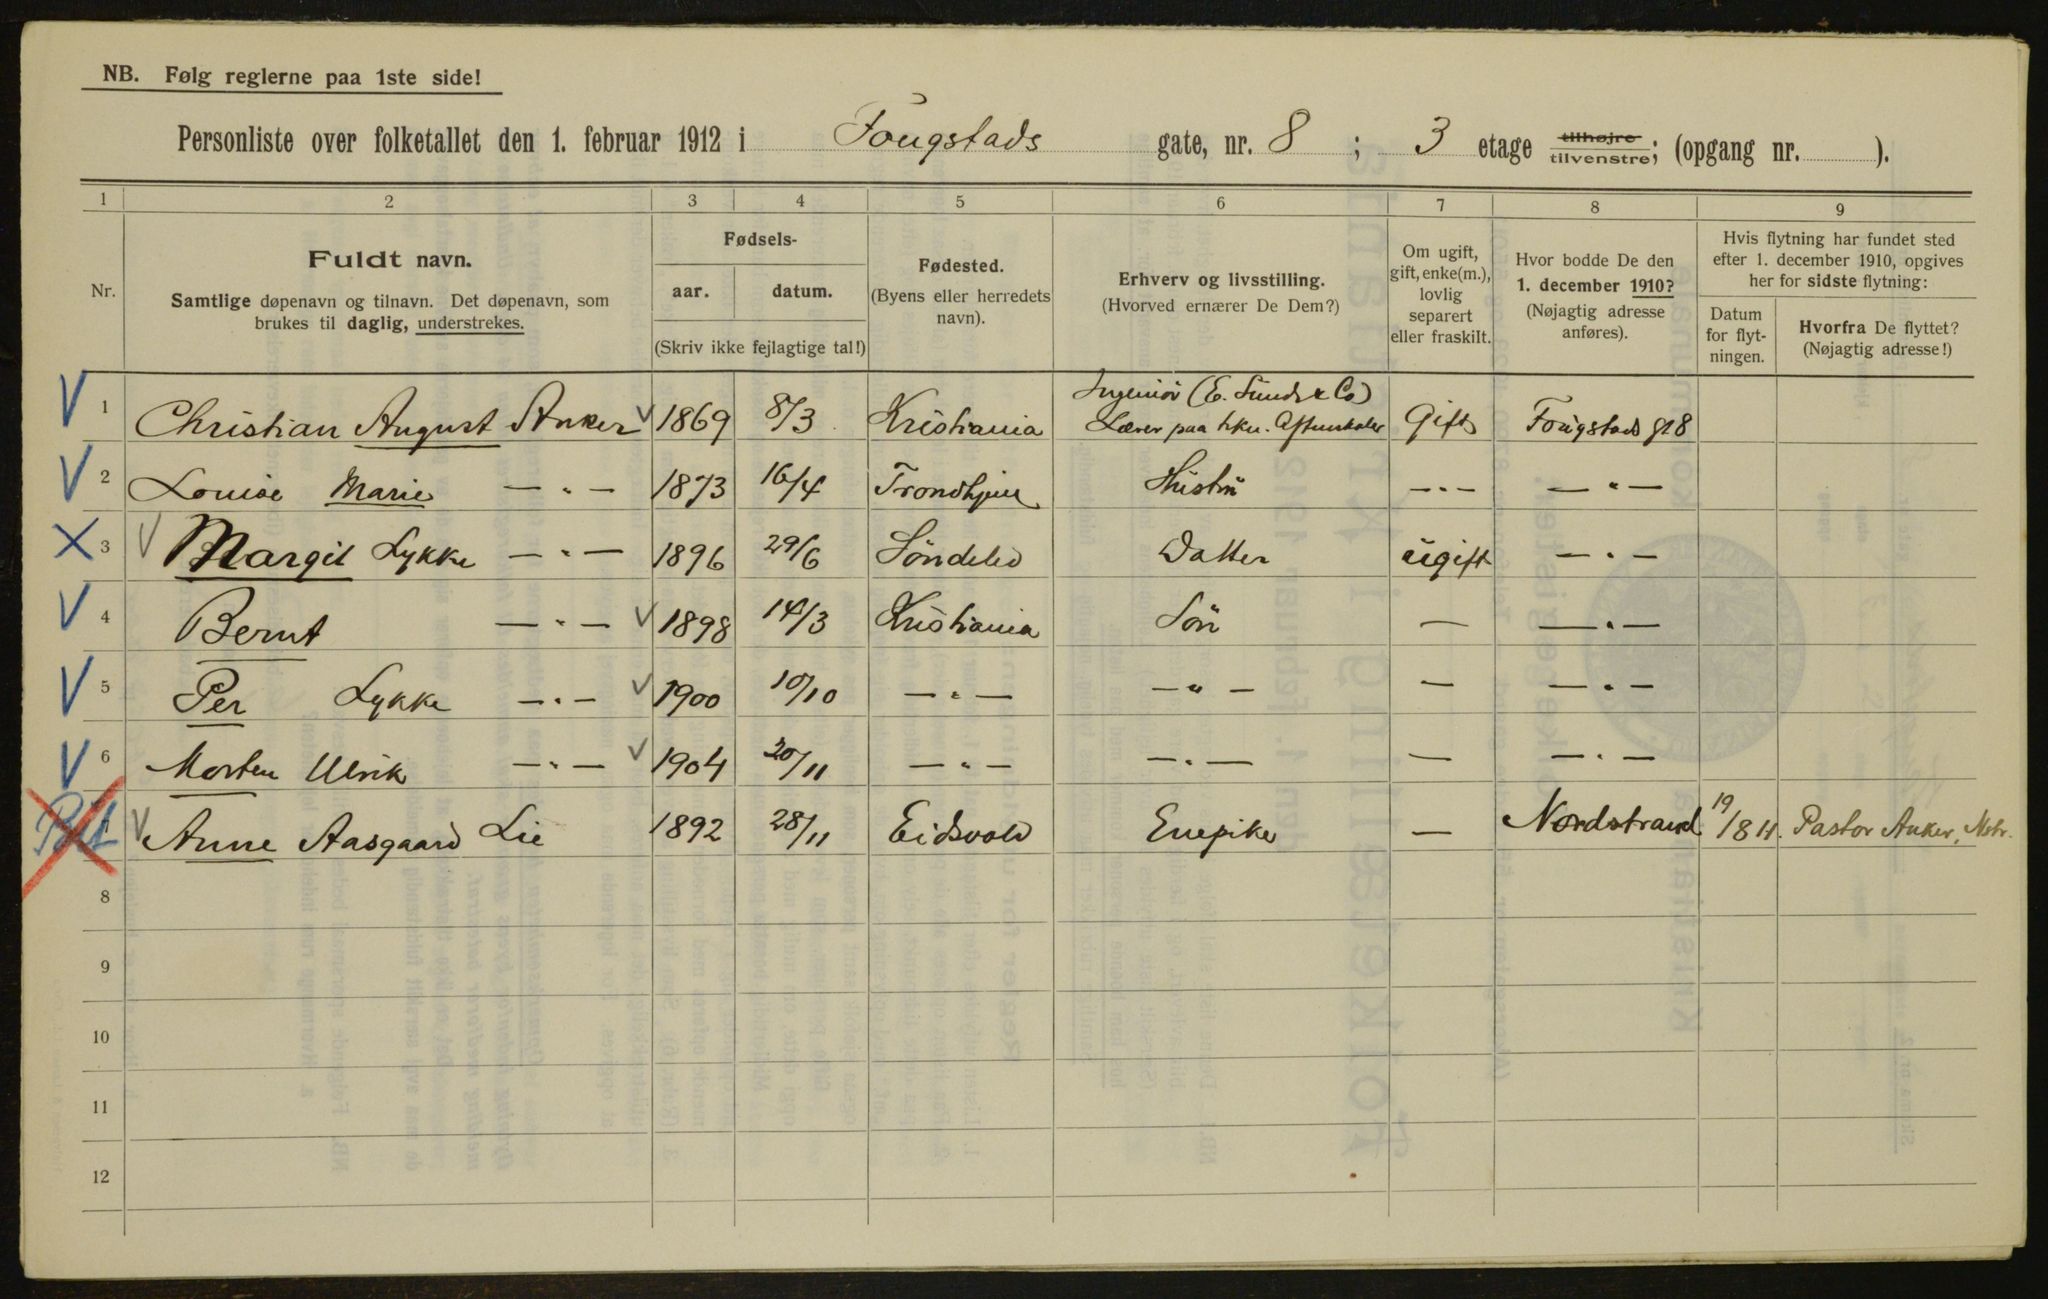 NB. Følg reglerne paa 1ste side!
Personliste over folketallet den 1. februar 1912 i Fougstads gate, nr. 8 ; 3 etage tilhøjre tilvenstre; (opgang nr. ).
1 2 3 4 5 6 7 8 9
Nr.
Fuldt navn.
Samtlige døpenavn og tilnavn. Det døpenavn, som
brukes til daglig, understrekes.
Fødsels-
aar. datum.
(Skriv ikke fejlagtige tal!)
Fødested.
(Byens eller herredets
navn).
Erhverv og livsstilling.
(Hvorved ernærer De Dem?)
Om ugift,
gift, enke(m.),
lovlig
separert
eller fraskilt.
Hvor bodde De den
1. december 1910?
(Nøjagtig adresse
anføres).
Hvis flytning har fundet sted
efter 1. december 1910, opgives
her for sidste flytning:
Datum
for flyt-
ningen.
Hvorfra De flyttet?
(Nøjagtig adresse!)
V 1 Christian August Anker V 1869 8/3 Kristiania Ingeniör (E. Sunds & Co) Lærer paa tkn. Aftenskole Gift Fougstads gt 8
V 2 Louise Marie — " — 1873 16/4 Trondhjem Hustru — " — — " —
X 3 V Margit Lykke — " — 1896 29/6 Söndeled Datter ugift — " —
V 4 Bernt — " — V 1898 14/3 Kristiania Sön — — " —
V 5 Per Lykke — " — V 1900 10/10 — " — — " — — — " —
V 6 Morten Ulrik — " — V 1904 20/11 — " — — " — — — " —
V Anne Aasgaard Lie 1892 28/11 Eidsvold Enepike — Nordstrand 19/8 11. Pastor Anker, Nstr.
8
9
10
11
12